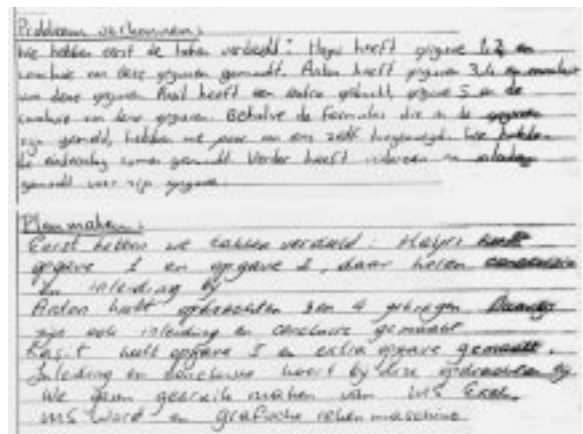 Probleem verkennen:
We hebben eerst de taken verdeeld: Hayri heeft opgave 1,2 en
conclusie van deze opgaven gemaakt. Anton heeft opgaven 3,4 en conclusie
van deze opgaven. Rasit heeft een extra opdracht, opgave 5 en de
conclusie van deze opgaven. Behalve de formules die in de opgaven
zijn gemeld, hebben we paar van ons zelf toegevoegd. We hebben
de samen gemaakt. Verder heeft iedereen een inleiding
gemaakt voor zijn opgave.
Plan maken:
Eerst hebben we takken verdeeld: Hayri heeft
opgave 1 en opgave 2, daar horen conclusie
en inleiding by
Anton heeft opdrachten 3 en 4 gekregen.
zijn ook inleiding en conclusie gemaakt
Rasit heeft opgave 5 en extra opgave gemaakt.
Inleiding en conclusie hoort by deze opdrachten by.
We gaan gebruik maken van MS Excel,
MS Word en grafische rekenmachine